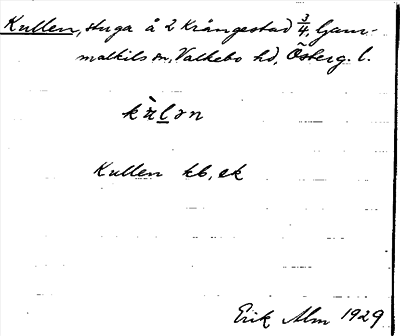 Kullen, stuga å 2 Krångestad 3/4, Gam-
malkils sn, Valkebo hd, Österg. l.
Kullen kb, ek
Erik Alm 1929